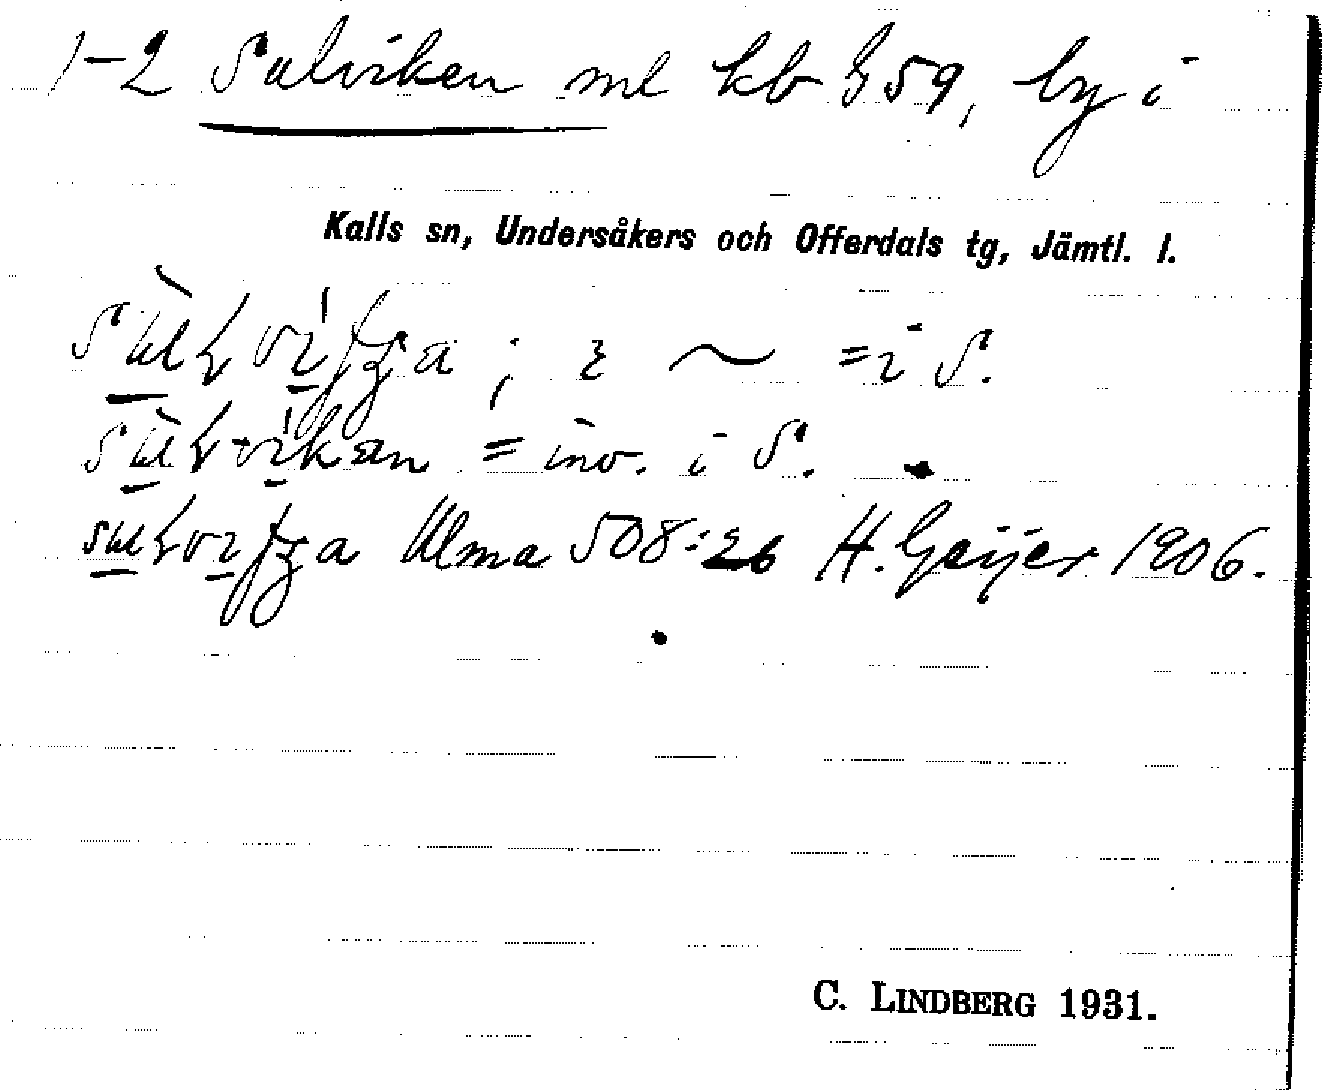 1-2 Sulviken ml kb § 59, by i
Kalls sn, Undersåkers och Offerdals tg, Jämtl. l.
; ~ = i S.
= inv. i S.
Ulma 508:26 H. Geijer 1906.
C. LINDBERG 1931.